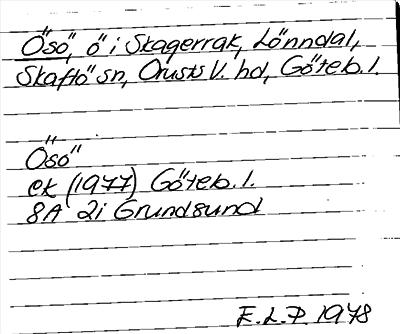 Ösö, ö i Skagerrak, Lönndal,
Skaftö sn, Orusts V. hd, Göteb. l.
Ösö
ek (1977) Göteb. l.
8A 2i Grundsund
E.L.P. 1978